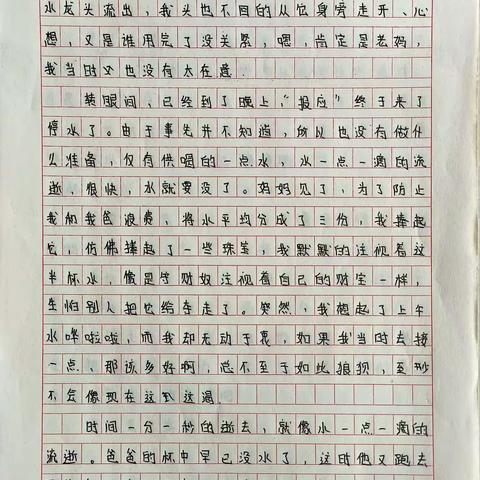 水龙头流出，我头也不回的从它身旁走开、心
想，又是谁用完了没关紧，嗯，肯定是老妈，
我当时又也没有太在意．
转眼间，已经到了晚上，“报应”终于来了
停水了。由于事先并不知道，所以也没有做什
么准备，仅有供喝的一点水，水一点一滴的流
逝，很快，水就要没了。妈妈见了，为了防止
我和我爸浪费，将水平均分成了三份，我捧起
它，仿佛捧起了一些珠宝，我默默的注视着这
半杯水，像是守财奴注视着自己的财宝一样，
生怕别人把它给夺走了。突然，我想起了上午
水哗啦啦，而我却无动于衷，如果我当时去接
一点，那该多好啊，总不至于如此狼狈，至少
不会像现在这又这渴．
时间一分一秒的逝去，就像水一点一滴的
流逝。爸爸的杯中早已没水了，这时他又跑去